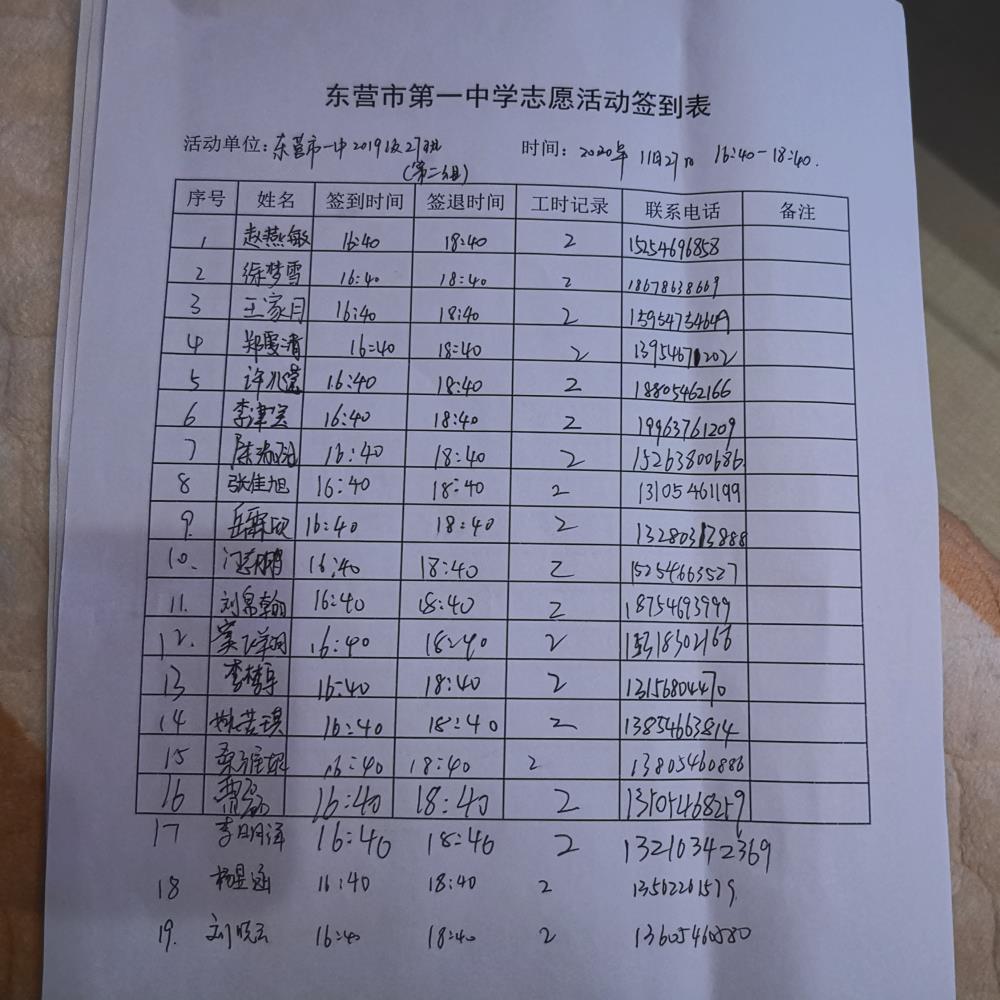 东营市第一中学志愿活动签到表
活动单位：东营市一中2019级27班 时间：2020年 11月27日 16:40-18:40.
（第二组）
序号 姓名 签到时间 签退时间 工时记录 联系电话 备注
1 赵燕敏 16:40 18:40 2 15254696858
2 徐梦雪 16:40 18:40 2 18678638669
3 王家月 16:40 18:40 2 15954754649
4 郑雯清 16:40 18:40 2 13954671202
5 许兆 16:40 18:40 2 18805462166
6 李津 16:40 18:40 2 19963761209
7 陈 16:40 18:40 2 15263800686
8 张佳旭 16:40 18:40 2 13105461199
9. 岳霖欣 16:40 18:40 2 13280313888
10. 16:40 18:40 2 15254663527
11. 刘帛翰 16:40 18:40 2 18754693999
12. 16:40 18:40 2 18302166
13 李梦 16:40 18:40 2 13156804470
14 姚芸琪 16:40 18:40 2 13854663814
15 16:40 18:40 2 13805460886
16 16:40 18:40 2 13505468259
17 李明洋 16:40 18:40 2 13210342369
18 杨星涵 16:40 18:40 2
19. 刘晓云 16:40 18:40 2 13605460580